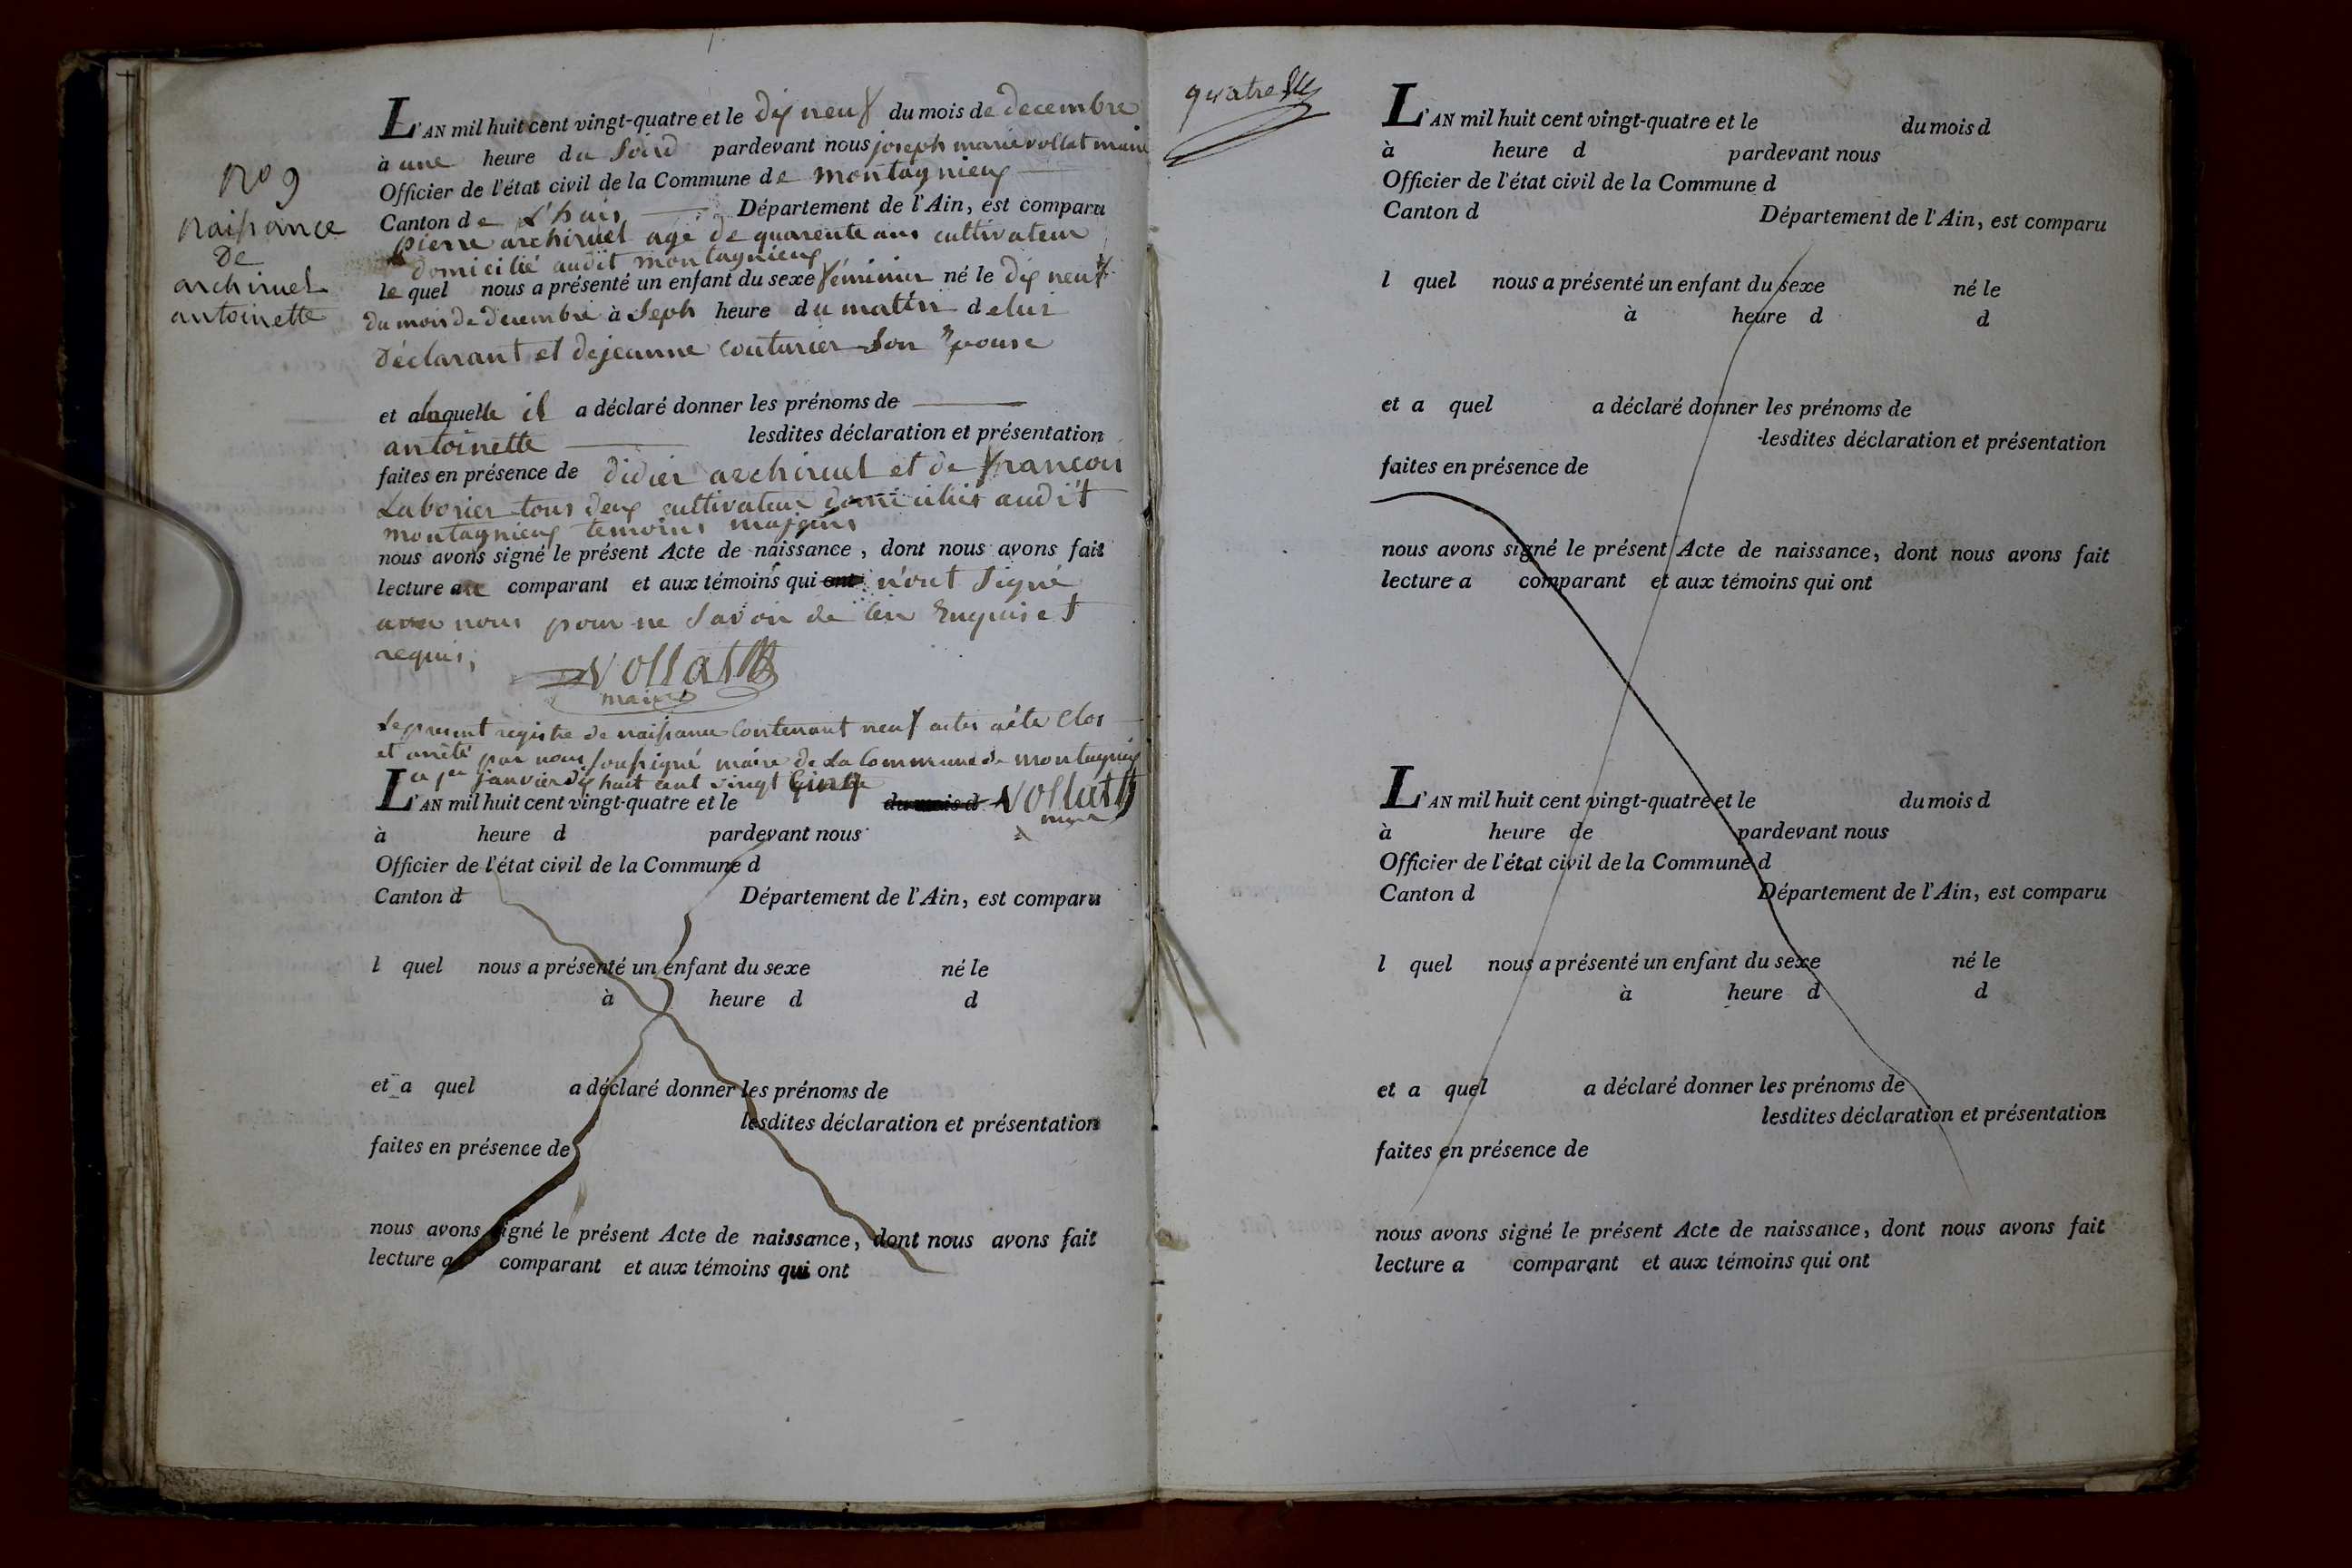 L'AN mil huit cent vingt-quatre et le dix neuf du mois de decembre
à une heure du Soird pardevant nous joseph marie vollat maire
Officier de l'état civil de la Commune de montagnieux
Canton de L'huis Département de l'Ain, est comparu
pierre archiruel agé de quarente ans cultivateur
domicilié audit montagnieux
le quel nous a présenté un enfant du sexe féminin né le dix neuf
du mois de decembre à Seph heure du matin de lui
Déclarant et de jeanne couturier Son Epouse
et a laquelle il a déclaré donner les prénoms de
antoinette lesdites déclaration et présentation
faites en présence de didier archiruel et de francois
Laborier tous deux cultivateur domiciliés audit
montagnieux temoins majeurs
nous avons signé le présent Acte de naissance, dont nous avons fait
lecture au comparant et aux témoins qui ont n'ont Signé
avec nous pour ne Savoir de len Enquis et
requis,
Vollat
maire
N° 9
naissance
De
archiruel
antoinette
Le present registre de naissance Contenant neuf actes a été Clos
et arrêté par nous soussigné maire de La Commune de montagnieux
ce 1er janvier dix huit cent vingt Cinq
Vollat
maire
L'AN mil huit cent vingt-quatre et le du mois d
à heure d pardevant nous
Officier de l'état civil de la Commune d
Canton d Département de l'Ain, est comparu
l quel nous a présenté un enfant du sexe né le
à heure d d
et a quel a déclaré donner les prénoms de
lesdites déclaration et présentation
faites en présence de
nous avons signé le présent Acte de naissance, dont nous avons fait
lecture a comparant et aux témoins qui ont
quatre
L'AN mil huit cent vingt-quatre et le du mois d
à heure d pardevant nous
Officier de l'état civil de la Commune d
Canton d Département de l'Ain, est comparu
l quel nous a présenté un enfant du sexe né le
à heure d d
et a quel a déclaré donner les prénoms de
lesdites déclaration et présentation
faites en présence de
nous avons signé le présent Acte de naissance, dont nous avons fait
lecture a comparant et aux témoins qui ont
L'AN mil huit cent vingt-quatre et le du mois d
à heure de pardevant nous
Officier de l'état civil de la Commune d
Canton d Département de l'Ain, est comparu
l quel nous a présenté un enfant du sexe né le
à heure d d
et a quel a déclaré donner les prénoms de
lesdites déclaration et présentation
faites en présence de
nous avons signé le présent Acte de naissance, dont nous avons fait
lecture a comparant et aux témoins qui ont